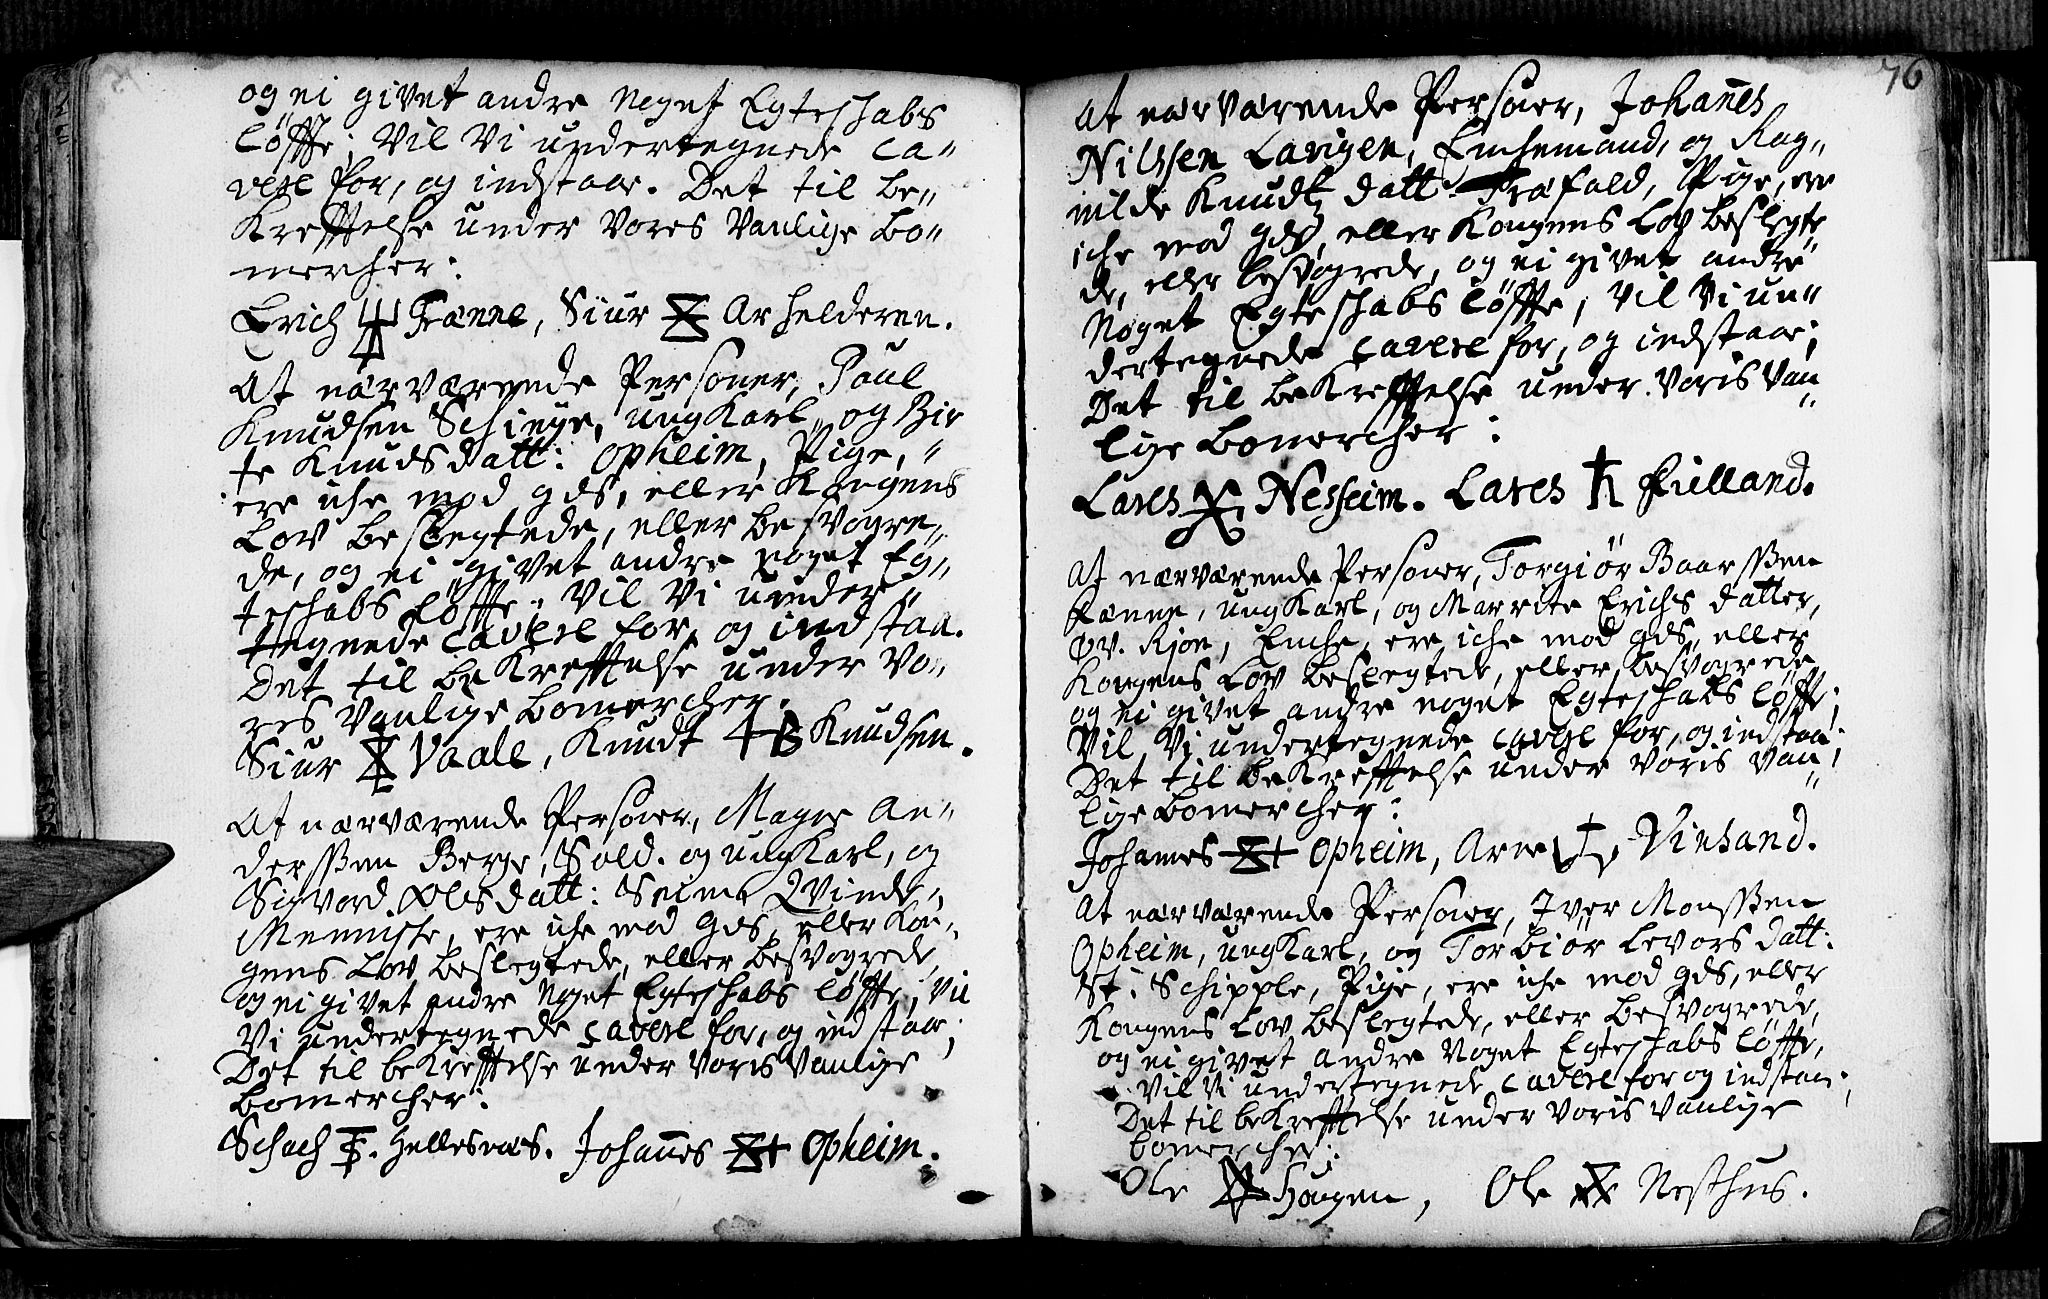 og ei givet andre noget Egteschabs
løffte; Vil Vi undertegnede ca„
vere for, og indstaae. Det til be„
Krefftelse under Vores Vanlige bo„
mercher:
Erich Frænne, Siur Arhelderen.
At nærværende Personer, Poul
Knudsen Schieye, ungKarl, og Bir
te Knudsdatt: Opheim, Pige, „
ere iche mod Gds, eller Kongens
Lov beslegtede, eller besvogre„
de, og ei givet andre noget Eg„
teschabs løffte; Vil Vi under„
tegnede cavere for, og indstaa.
Det til beKrefftelse under Vo„
res Vanlige bomercher.
Siur Vaale, Knudt Knudsen.
At nærværende Personer, Magne An„
derssen Berge, Sold. og ungKarl, og
Sigvord Olsdatt: Seime Qvinde„
Menniste, ere iche mod Gds, eller Kon„
gens Lov beslegtede, eller besvogrede,
og ei givet andre Noget Egteschabs løffte; Vil
Vi undertegnede cavere for, og indstaae;
Det til bekrefftelse under Voris Vanlige
bomercher:
Schach Hellesnæs. Johannes Opheim.
76
At nærværende Personer, Johannes
Nilssen Lavigen, Enchemand, og Rag„
nilde Knudtzdatt Træfald, Pige, ere
iche mod Gds, eller Kongens Lov beslegte
de, eller besvogrede, og ei givet andre
Noget Egteschabs løffte; Vil Vi un„
dertegnede cavere for, og indstaae;
Det til beKrefftelse under Voris Van„
lige bomercher:
Lares Nesheim. Lares Fielland.
At nærværende Personer, Torgiør Baarssen
Rænne, ungKarl, og Marrite Erichsdatter,
Øv. Kjøn, Enche, ere iche mod Gds, eller
Kongens Lov beslegtede, eller besvogrede,
og ei givet andre noget Egteschabs løffte;
Vil Vi undertegnede cavere for, og indstaa;
Det til beKrefftelse under Voris Van„
lige bomercher:
Johannes Opheim, Arne Vinsand.
At nærværende Personer, Iver Monssen
Opheim, ungKarl, og Torbiør Levorsdatt:
St: Schipple, Pige, ere iche mod Gds, eller
Kongens Lov beslegtede, eller besvogrede,
og ei givet andre Noget Egteschabs løffte,
Vil Vi undertegnede cavere for og indstaae;
Det til beKrefftelse under Voris Vanlige
bomercher:
Ole Haugen, Ole Nesthus.